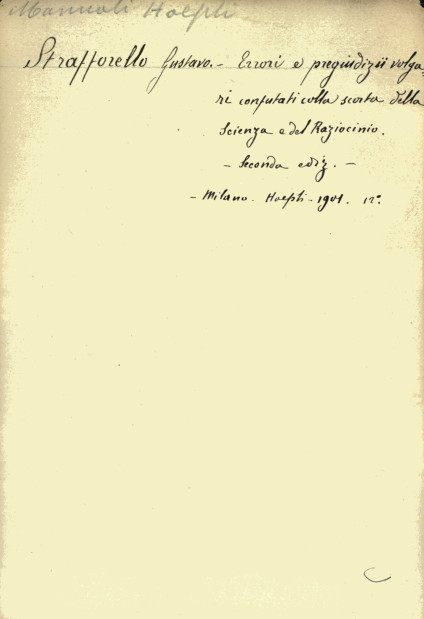 Manuali Hoepli
Strafforello Gustavo. - Errori e pregiudizii volga-
ri confutati colla scorta della
Scienza e del Raziocinio.
- Seconda ediz. -
- Milano. Hoepli - 1901. 12º.